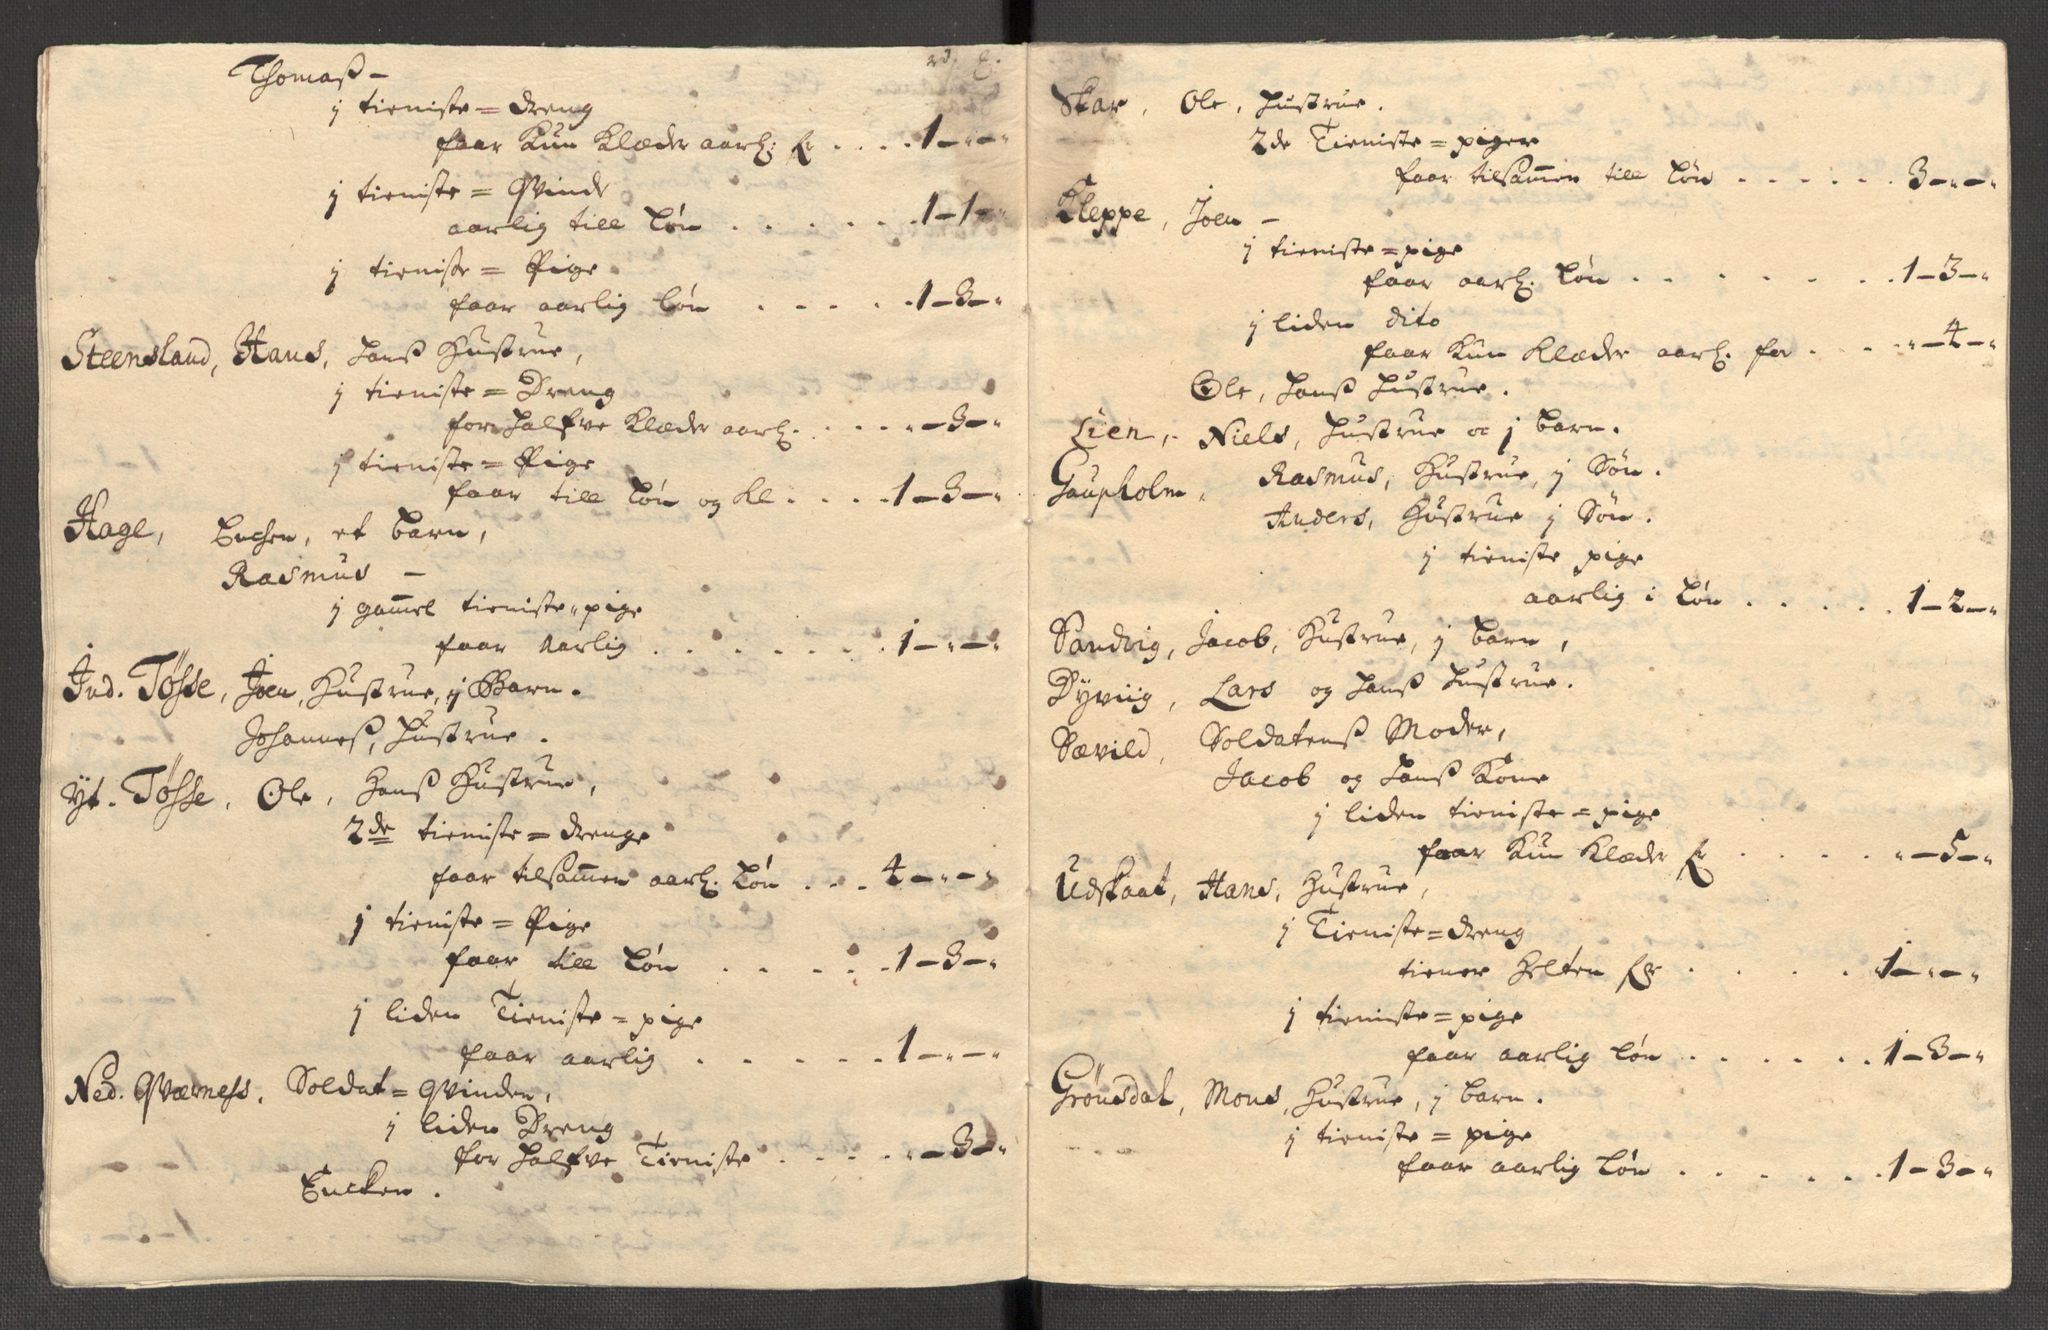 Thomas –
j tieniste = dreng
faar Kun Klæder aarl: for . . . . 1 – „ – „
j tieniste = Qvinde
aarlig till Løn . . . . . . 1 – 1 – „
j tieniste = Pige
faar aarlig løn . . . . . 1 – 3 – „
Steensland, Hans, Hans Hustrue,
j tieniste = Dreng
for halfve Klæder aarl. . . . . „ – 3 – „
j tieniste = Pige
faar till Løn og Kl . . . . 1 – 3 – „
Hage, Encken, et barn,
Rasmus –
j gam̄el tieniste „ pige
faar aarlig . . . . . . . 1 – „ – „
Ind. Tøsse, Joen, Hustrue, j Barn.
Johannes, Hustrue.
Yt. Tøsse, Ole, Hans Hustrue,
2de tieniste = drenge
faar tilsam̄en aarl. Løn . . . 4 – „ – „
j tieniste = Pige
faar till Løn . . . . . 1 – 3 – „
j liden Tieniste = pige
faar aarlig . . . . . 1 – „ – „
Ned. Qværness, Soldat = Qvinden,
j liden Dreng
for halfve Tieniste . . . . „ – 3 – „
Encken.
Skar, Ole, Hustrue.
2de Tieniste = piger
faar tilsam̄en till Løn . . . . . . 3 – „ – „
Kleppe, Joen –
j tieniste = pige
faar aarl. Løn . . . . . . . 1 – 3 – „
j liden dito
faar Kun Klæder aarl. for . . . „ – 4 – „
Ole, Hans Hustrue.
Lien, Niels, Hustrue oc j barn.
Gaupholm, Rasmus, Hustrue, j Søn.
Anders, Hustrue j Søn.
j tieniste pige
aarlig i Løn . . . . . 1 – 2 – „
Sandvig, Jacob, Hustrue, j barn,
Dyviig, Lars og Hans Hustrue.
Sævild, Soldatens Moder,
Jacob og Hans Kone
j liden tieniste = pige
faar Kun Klæder for . . . . . „ – 5 – „
Udskaat, Hans, Hustrue,
j Tieniste = dreng
tiener helten for . . . . . 1 – „ – „
j tieniste = pige
faar aarlig løn . . . . . . 1 – 3 – „
Grønsdal, Mons, Hustrue, j barn.
j tieniste = pige
faar aarlig Løn . . . . . . 1 – 3 – „